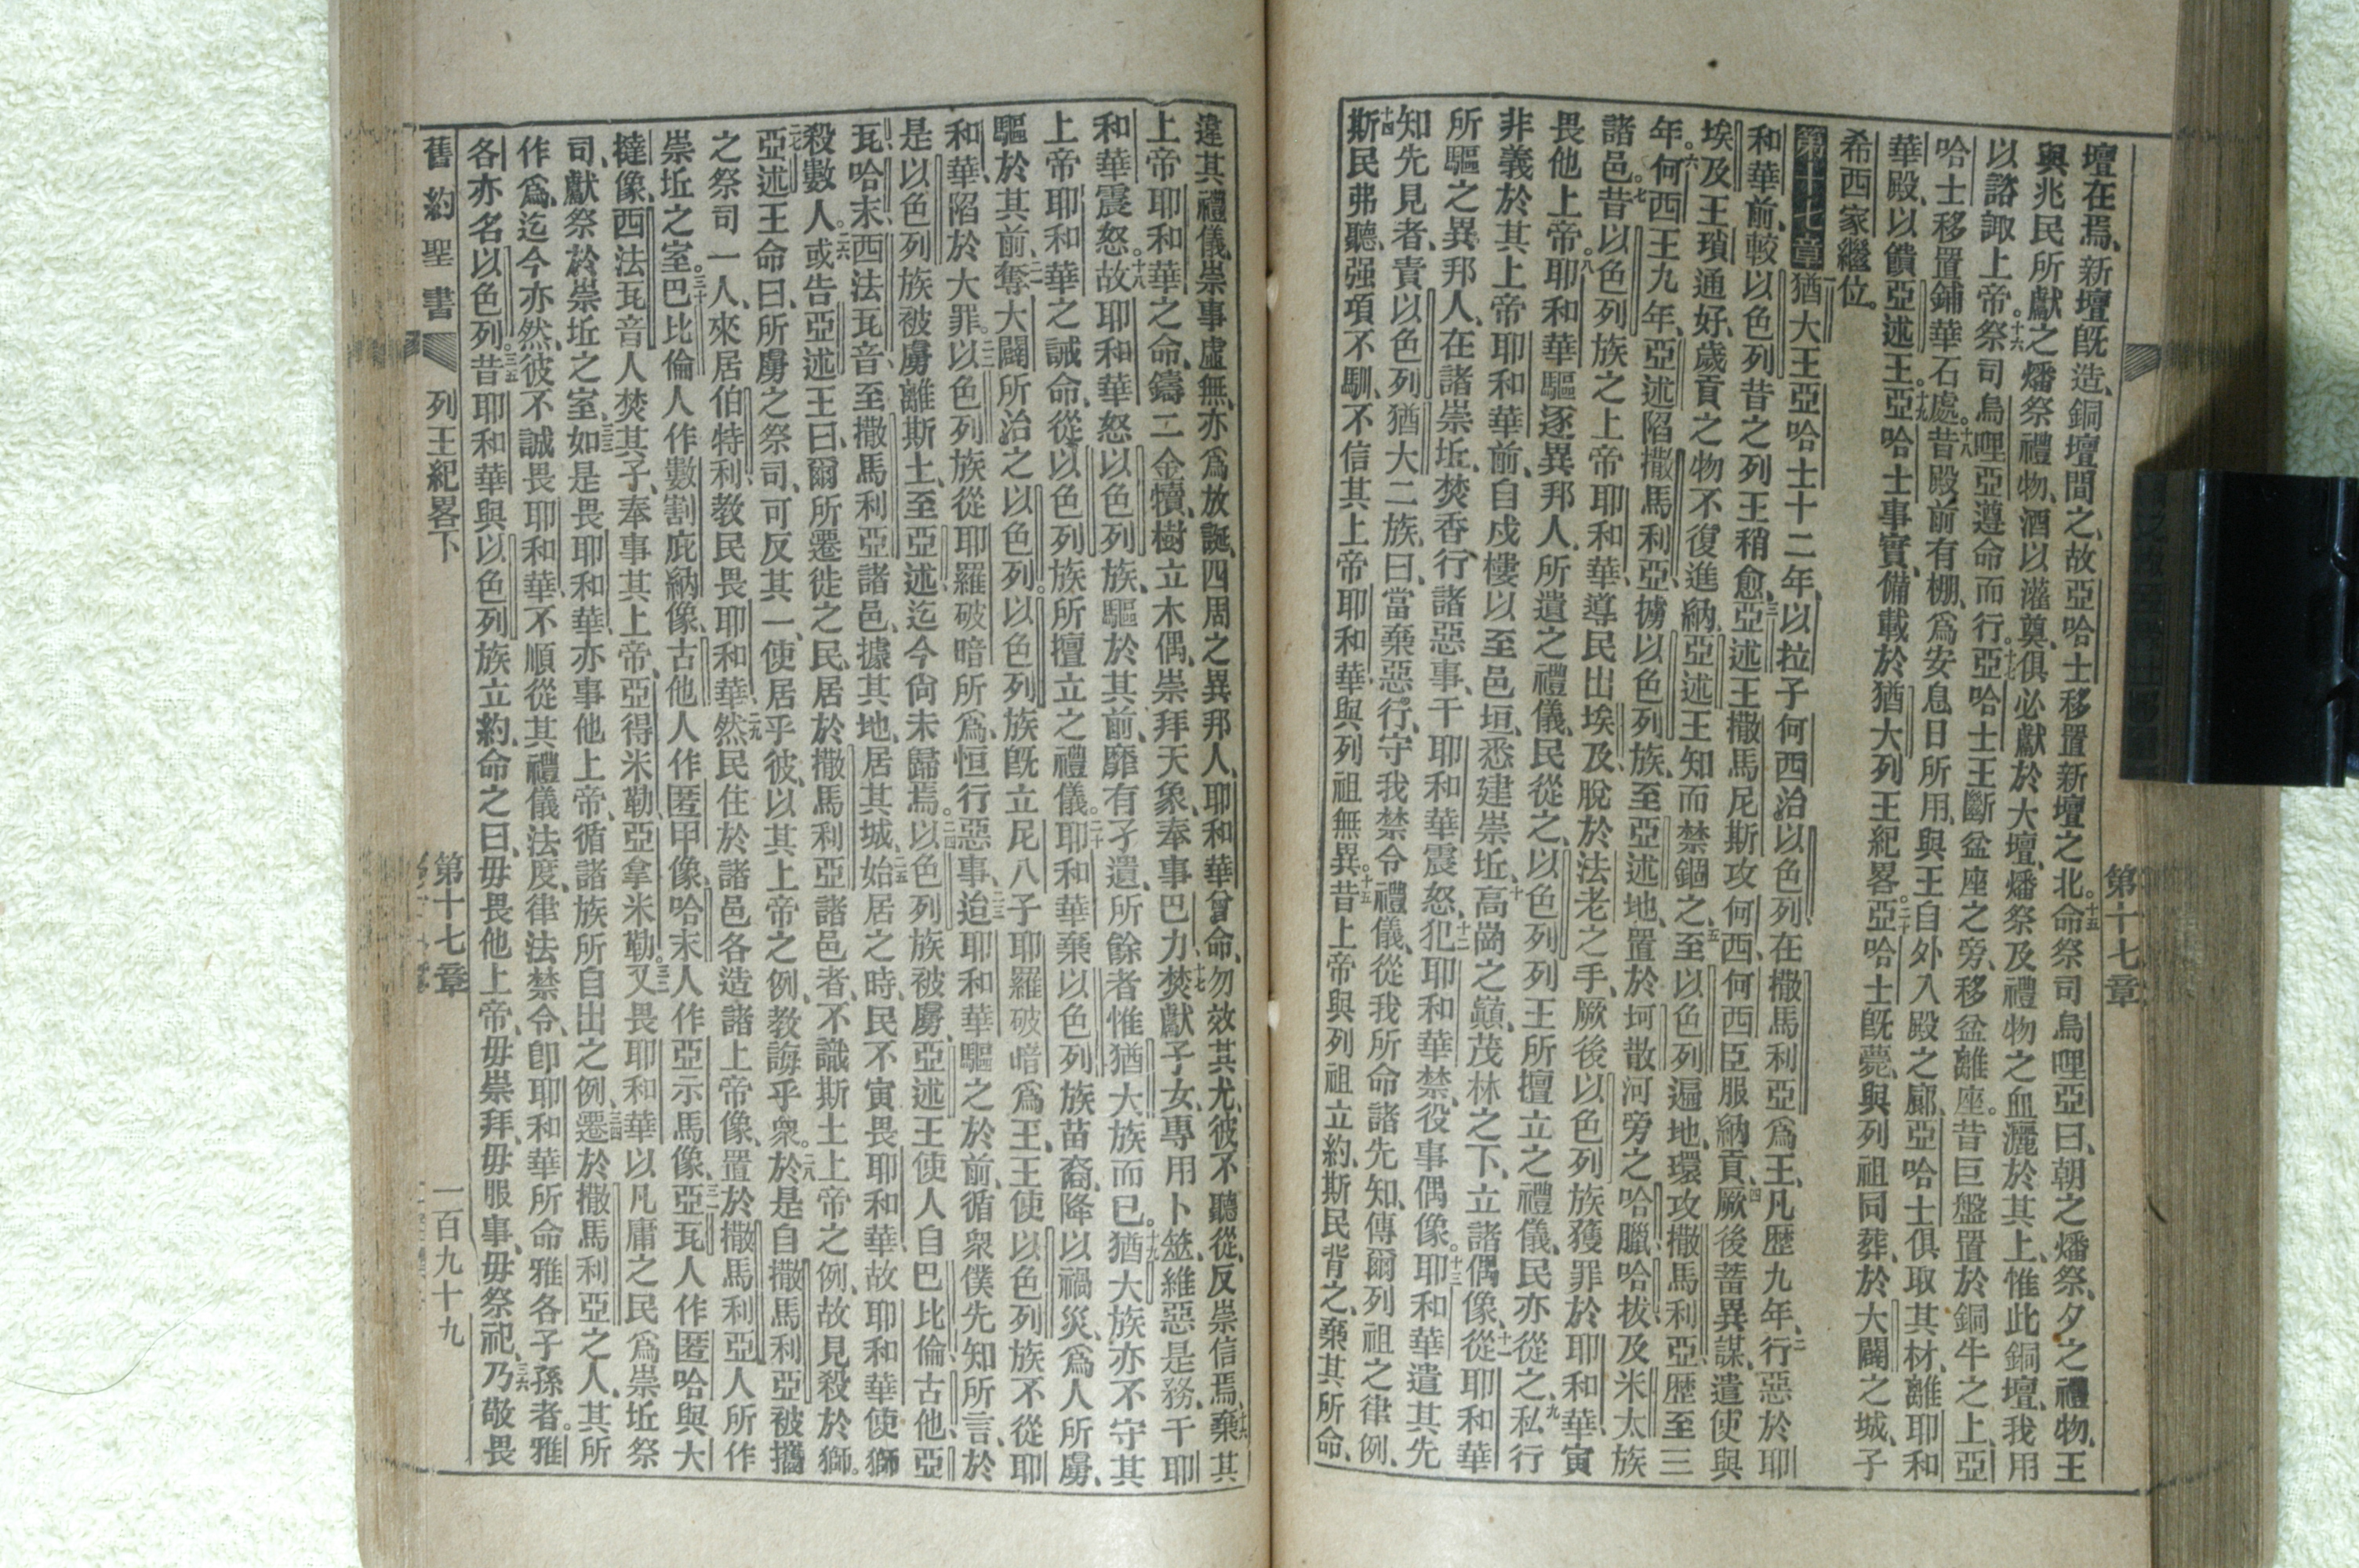 第十七章
壇在焉、新壇旣造、銅壇間之、故亞哈士移置新壇之北。十五命祭司烏哩亞曰、朝之燔祭、夕之禮物、王
與兆民所獻之燔祭禮物、酒以灌奠、俱必獻於大壇、燔祭及禮物之血、灑於其上、惟此銅壇、我用
以諮諏上帝。十六祭司烏哩亞遵命而行。十七亞哈士王斷盆座之旁、移盆離座。昔巨盤置於銅牛之上、亞
哈士移置鋪華石處。十八昔殿前有棚、爲安息日所用、與王自外入殿之廊、亞哈士俱取其材、離耶和
華殿、以饋亞述王。十九亞哈士事實、備載於猶大列王紀畧。二十亞哈士旣薨、與列祖同葬、於大闢之城、子
希西家繼位。
第十七章 一猶大王亞哈士十二年、以拉子何西治以色列、在撒馬利亞爲王、凡歷九年、二行惡於耶
和華前、較以色列昔之列王稍愈、三亞述王撒馬尼斯攻何西、何西臣服納貢、四厥後蓄異謀、遣使與
埃及王瑣通好、歲貢之物不復進納、亞述王知而禁錮之、五至以色列遍地、環攻撒馬利亞、歷至三
年。六何西王九年、亞述陷撒馬利亞、擄以色列族、至亞述地、置於坷散河旁之哈臘、哈拔、及米太族
諸邑。七昔以色列族之上帝耶和華、導民出埃及、脫於法老之手、厥後以色列族獲罪於耶和華、寅
畏他上帝。八耶和華驅逐異邦人、所遺之禮儀、民從之、以色列列王所擅立之禮儀、民亦從之、九私行
非義於其上帝耶和華前、自戍樓以至邑垣、悉建崇坵、十高崗之巔、茂林之下、立諸偶像、十一從耶和華
所驅之異邦人、在諸崇坵、焚香、行諸惡事、干耶和華震怒、十二犯耶和華禁、役事偶像。十三耶和華遣其先
知先見者、責以色列猶大二族、曰、當棄惡行、守我禁令禮儀、從我所命諸先知、傳爾列祖之律例、
十四斯民弗聽、强項不馴、不信其上帝耶和華、與列祖無異。十五昔上帝與列祖立約、斯民背之、棄其所命、
違其禮儀、崇事虛無、亦爲放誕、四周之異邦人、耶和華曾命、勿效其尤、彼不聽從、反崇信焉、十六棄其
上帝耶和華之命、鑄二金犢、樹立木偶、崇拜天象、奉事巴力、十七焚獻子女、專用卜筮、維惡是務、干耶
和華震怒、十八故耶和華怒以色列族、驅於其前、靡有孑遺、所餘者惟猶大族而已。十九猶大族亦不守其
上帝耶和華之誡命、從以色列族所擅立之禮儀。二十耶和華棄以色列族苗裔、降以禍災、爲人所虜、
驅於其前、二一奪大闢所治之以色列。以色列族旣立尼八子耶羅破暗爲王、王使以色列族不從耶
和華、陷於大罪。二二以色列族從耶羅破暗所爲、恒行惡事、二三迨耶和華驅之於前、循衆僕先知所言、於
是以色列族被虜離斯土、至亞述、迄今尙未歸焉。二四以色列族被虜、亞述王使人自巴比倫、古他、亞
瓦、哈末、西法瓦音、至撒馬利亞諸邑、據其地、居其城、二五始居之時、民不寅畏耶和華、故耶和華使獅
殺數人。二六或告亞述王曰、爾所遷徙之民、居於撒馬利亞諸邑者、不識斯土上帝之例、故見殺於獅。
二七亞述王命曰、所虜之祭司、可反其一、使居乎彼、以其上帝之例、教誨乎衆。二八於是自撒馬利亞被攜
之祭司一人、來居伯特利、教民畏耶和華、二九然民住於諸邑、各造諸上帝像、置於撒馬利亞人所作
崇坵之室。三十巴比倫人作數割庇納像、古他人作匿甲像、哈末人作亞示馬像、三一亞瓦人作匿哈與大
撻像、西法瓦音人焚其子、奉事其上帝、亞得米勒、亞拿米勒。三二又畏耶和華、以凡庸之民爲崇坵祭
司、獻祭於崇坵之室、三三如是畏耶和華、亦事他上帝、循諸族所自出之例、三四遷於撒馬利亞之人、其所
作爲、迄今亦然、彼不誠畏耶和華、不順從其禮儀法度、律法禁令、卽耶和華所命雅各子孫者。雅
各亦名以色列。三五昔耶和華與以色列族立約、命之曰、毋畏他上帝、毋崇拜、毋服事、毋祭祀、三六乃敬畏
舊約聖書 列王紀畧下 第十七章 一百九十九